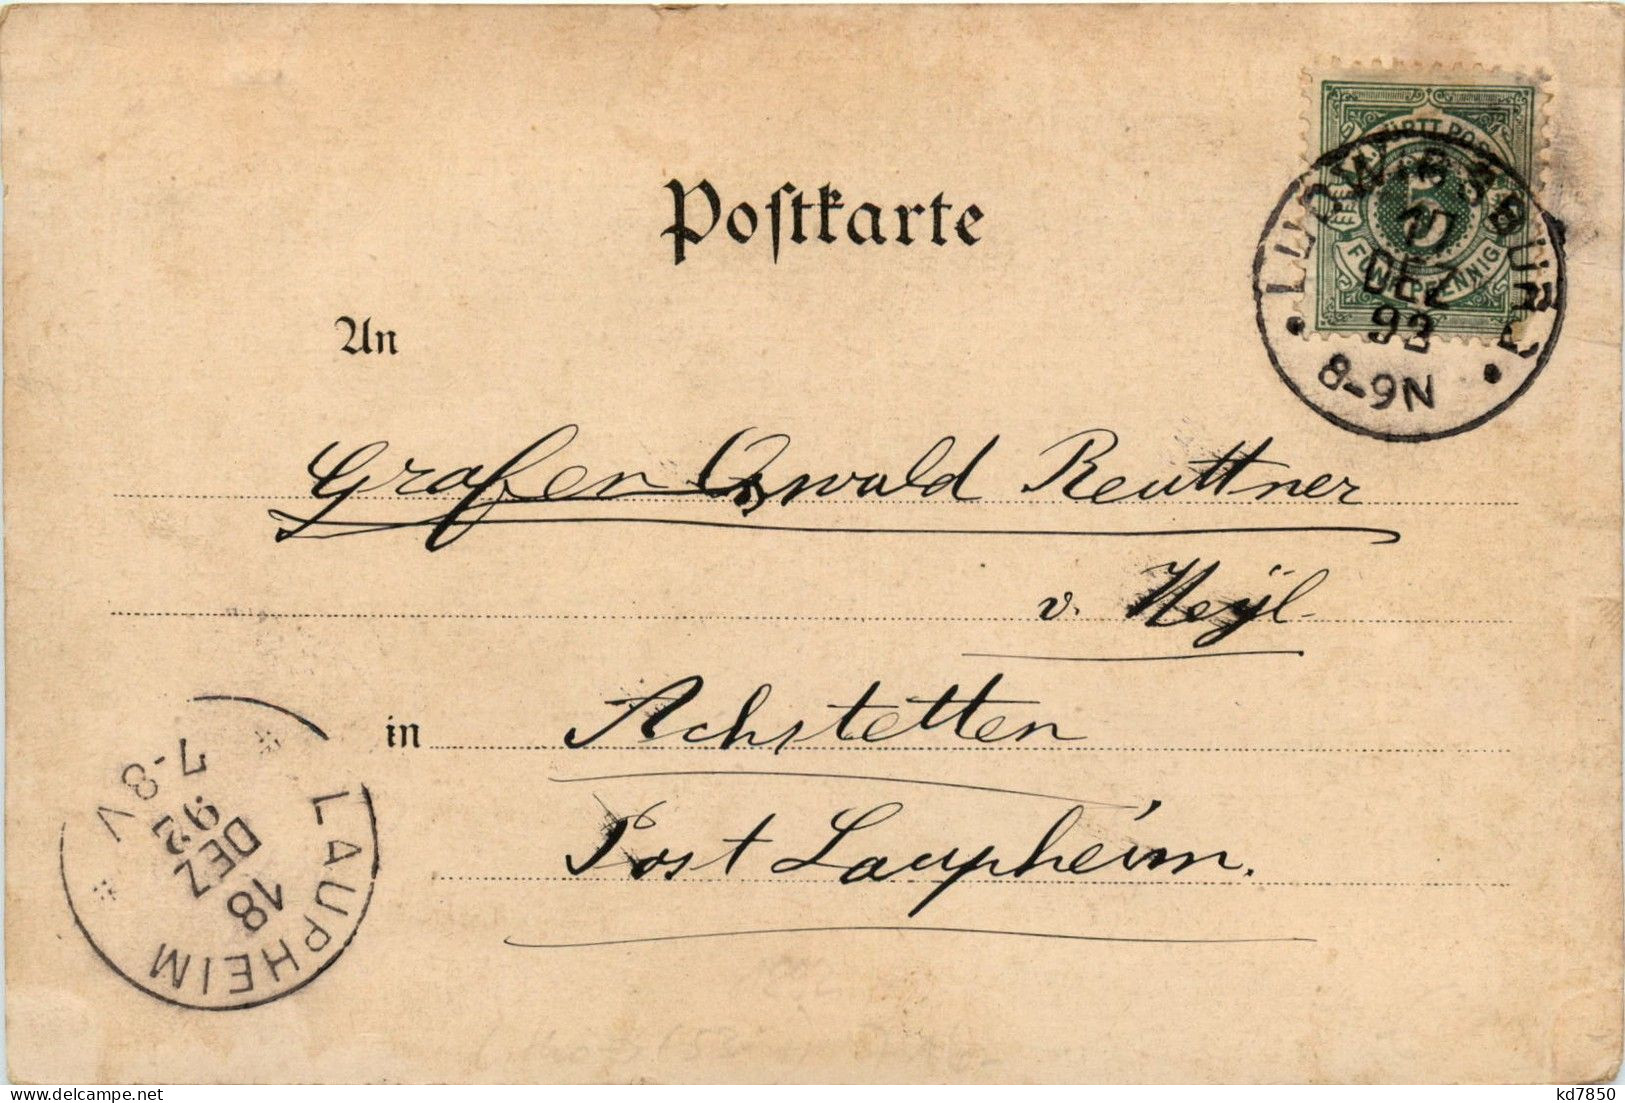 Postkarte
WÜRTT. POST
5
FÜNF PFENNIG
LUDWIGSBURG
17
DEZ
92
8-9N
An
Grafen Oswald Reuttner
v. Weyl
in Achstetten
Post Laupheim.
7-8V
92
DEZ
18
LAUPHEIM
delcampe.net
kd7850